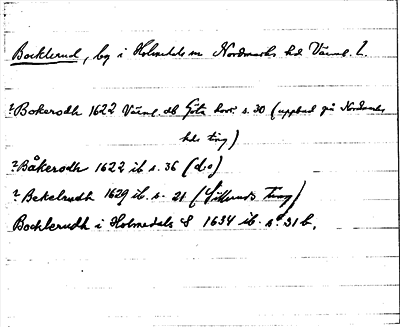 Bocklerud, by i Holmedals sn Nordmarks hd Värml. l.
? Bokerodh 1622 Värml. db Göta hovr. s. 30 (uppbud på Nordmarks
hds ting)
? Båkerodh 1622 ib s. 36 (d:o)
? Bekelrudh 1629 ib. s. 21 (Silleruds ting)
Bocklerudh i Holmedals S 1634 ib. s. 31 b.